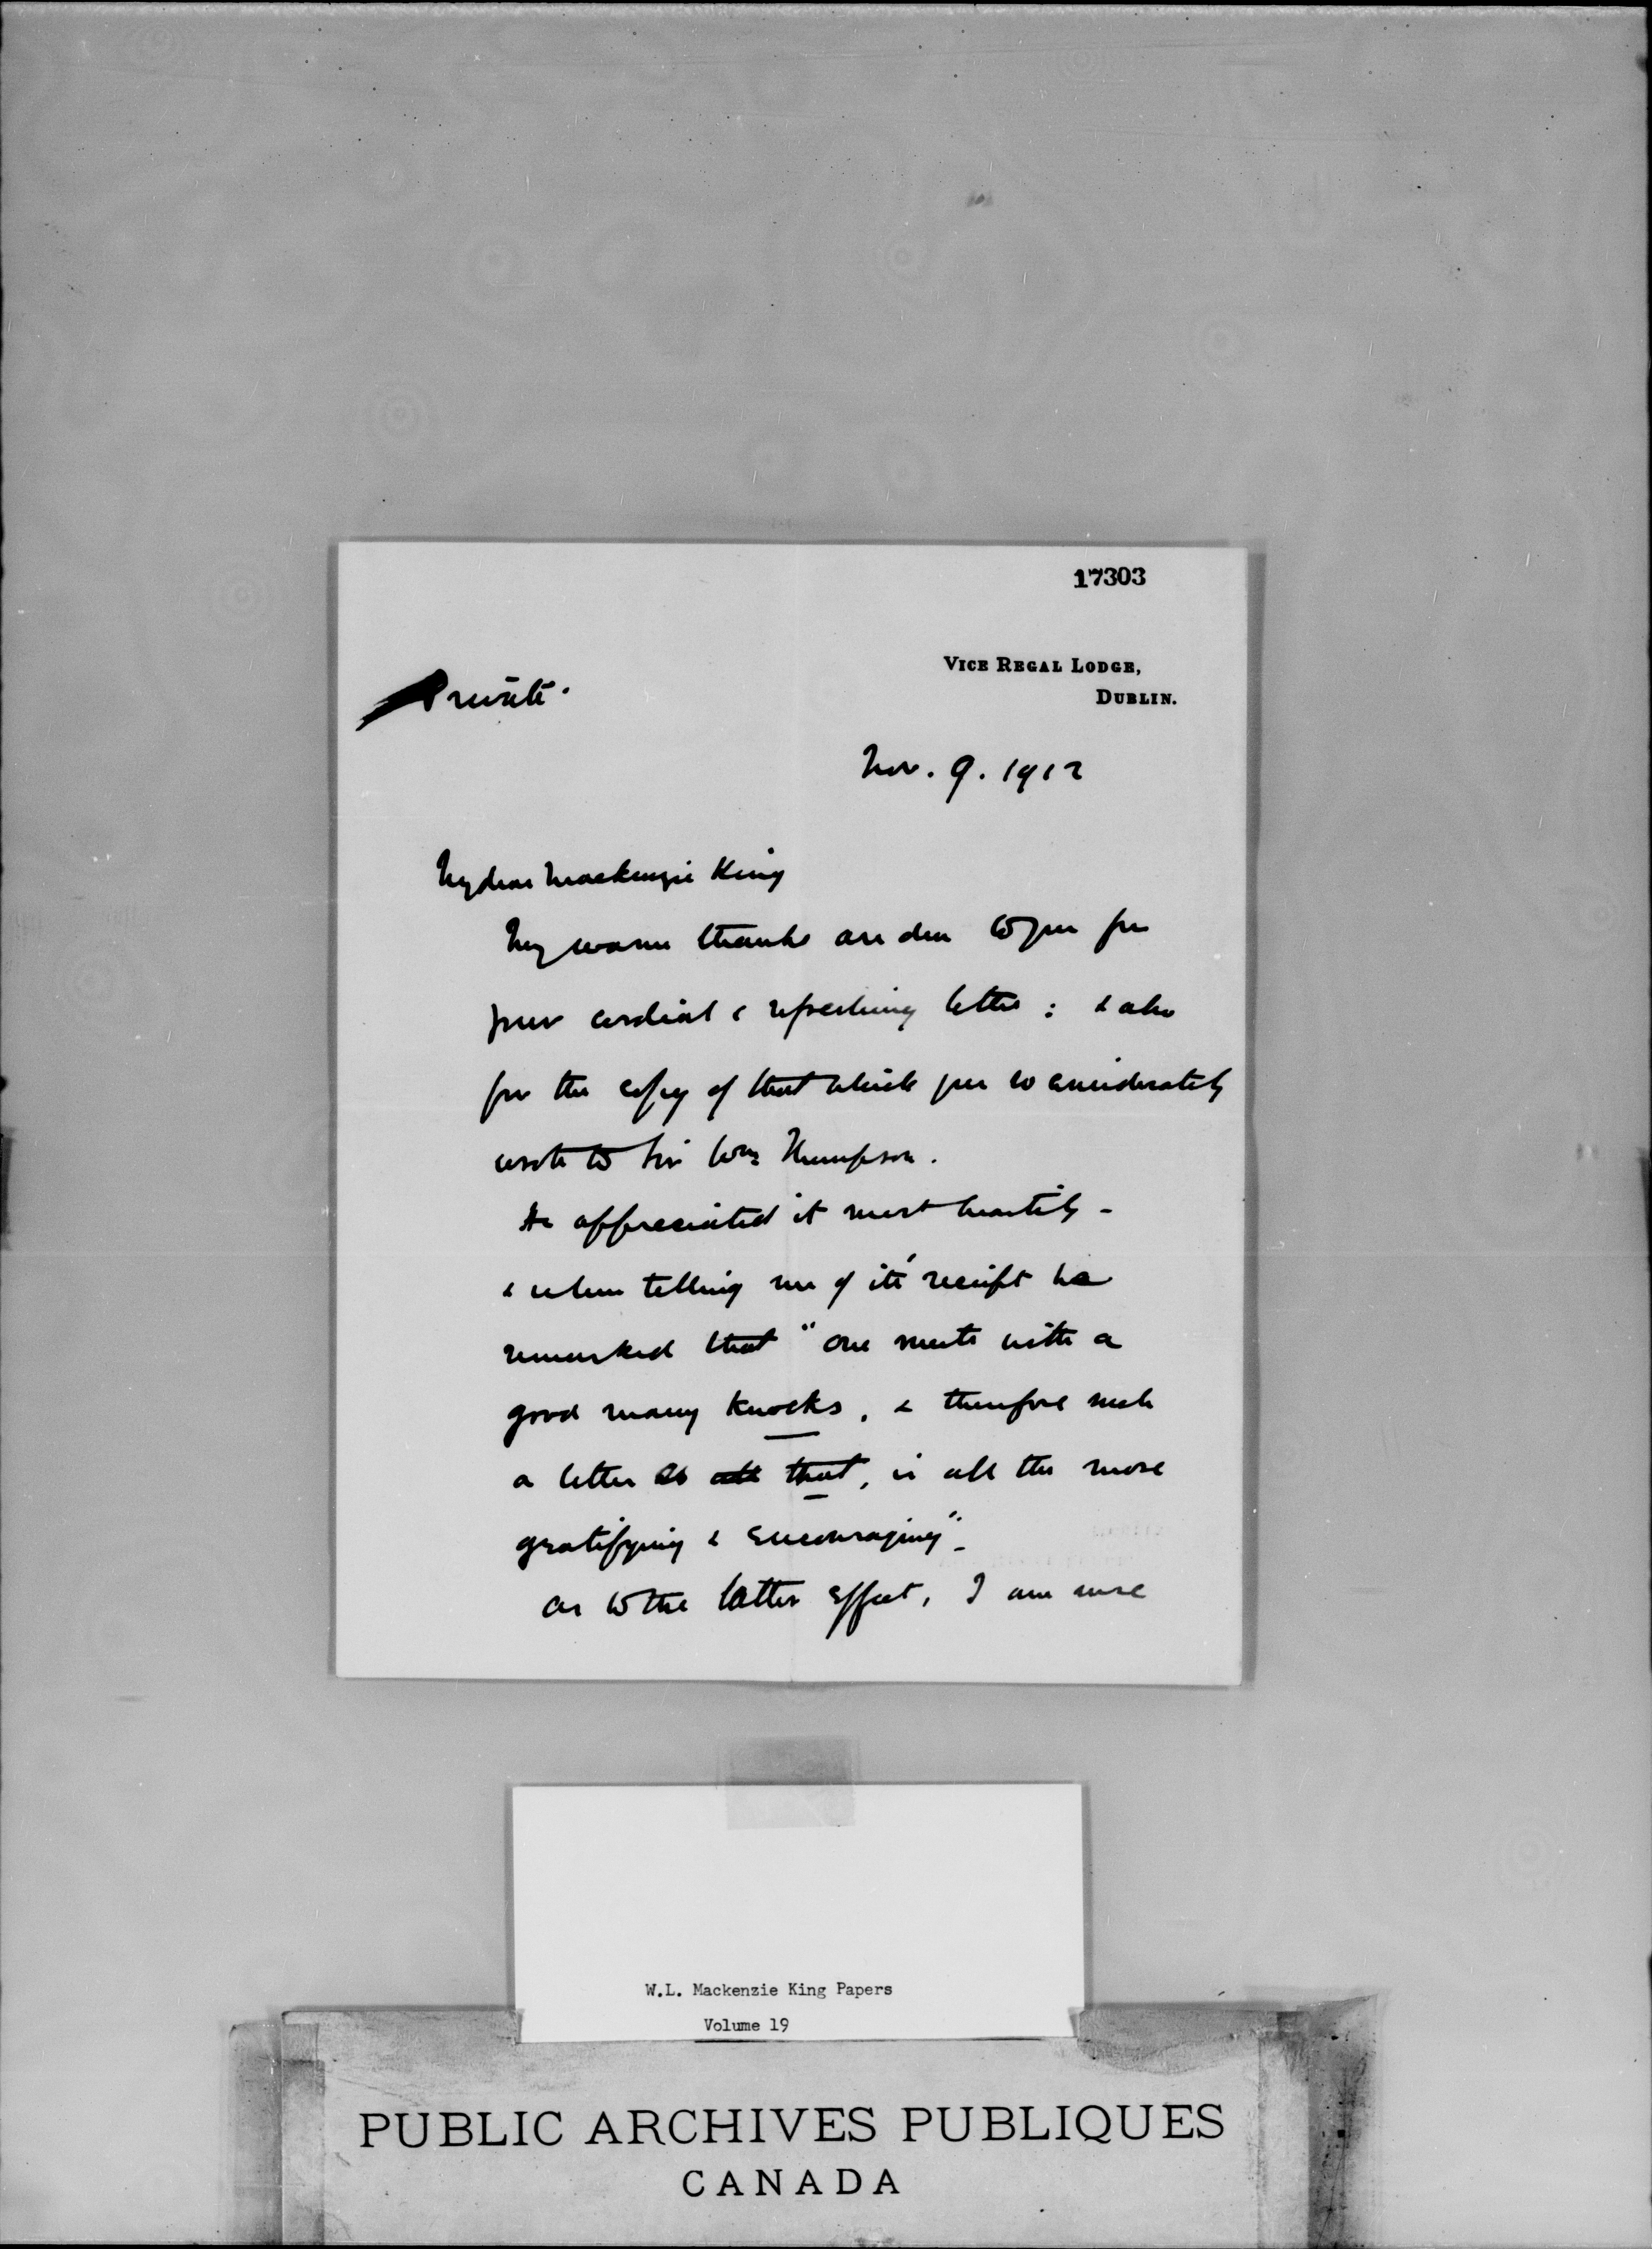 17303
VICE REGAL LODGE,
DUBLIN.
Private.
Nov. 9. 1912
My dear Mackenzie King
My warm thanks are due to you for
your cordial & refreshing letter : & also
for the copy of that which you so considerately
wrote to Sir Wm Thompson.
He appreciated it most heartily -
& when telling me of its' receipt he
remarked that "one meets with a
good many knocks, & therefore such
a letter as that, is all the more
gratifying & encouraging"-
As to the latter effect, I am sure
W.L. Mackenzie King Papers
Volume 19
PUBLIC ARCHIVES PUBLIQUES
CANADA